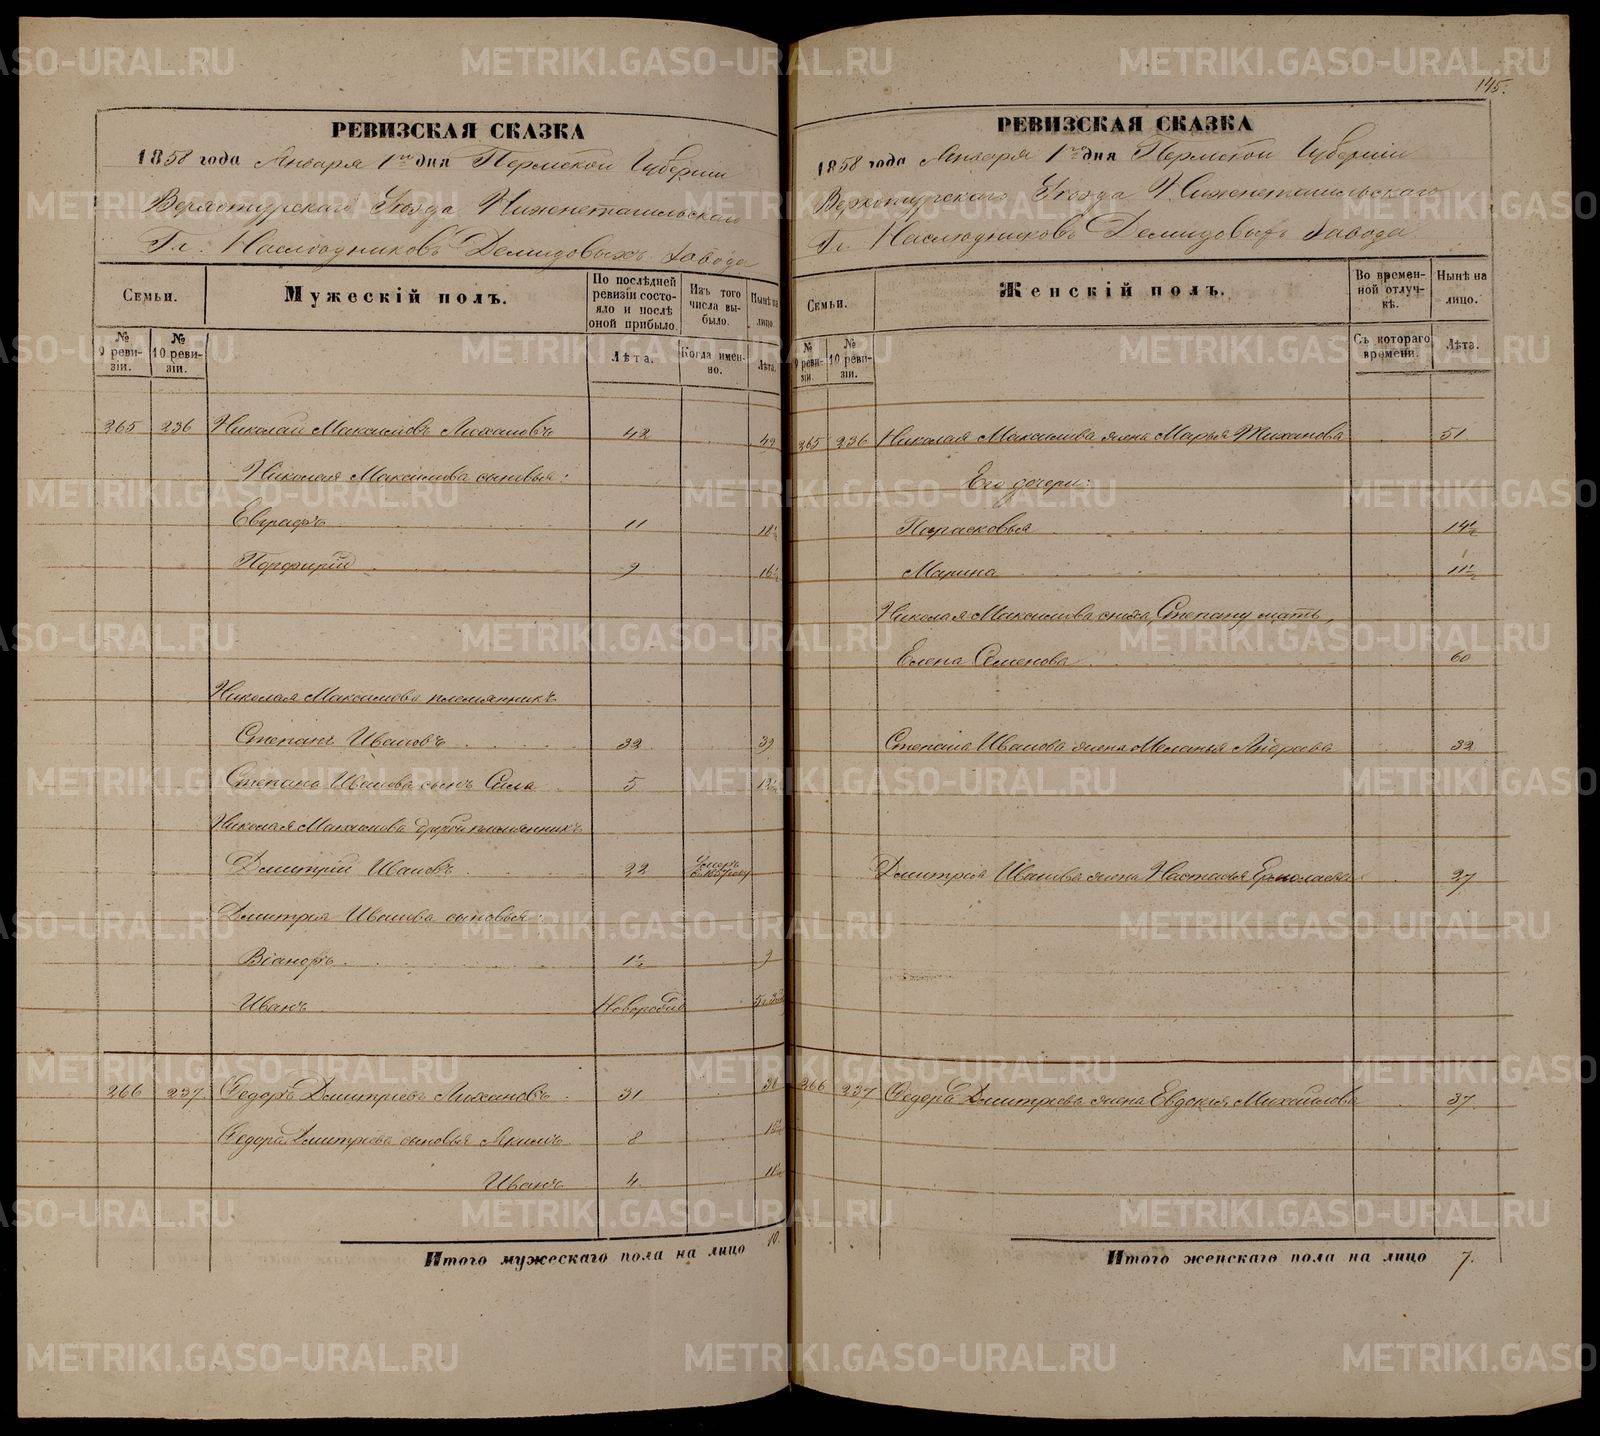 145.
РЕВИЗСКАЯ СКАЗКА
1858 года Января 1го дня Пермской Губернии
Верхотурскаго Уѣзда Нижнетагильскаго
Гг. Наслѣдниковъ Демидовыхъ Завода
Семьи.
Мужескій полъ.
По послѣдней ревизіи состояло и послѣ оной прибыло.
Изъ того числа выбыло.
Нынѣ на лицо.
№ 9 ревизіи.
№ 10 ревизіи.
Лѣта.
Когда именно.
Лѣта.
265 236 Николай Максимовъ 42 49
Николая Максимова сыновья:
Евграфъ 11 18½
Порфирій 9 16½
Николая Максимова племянникъ
Степанъ Ивановъ 32 39
Степана Иванова сынъ Сила 5 12½
Николая Максимова другой племянникъ
Дмитрій Ивановъ 22 Умеръ
Дмитрія Иванова сыновья:
Віаноръ 1½ 9
Иванъ Новорожд
266 237 Федоръ Дмитріевъ Лихановъ 31 38
Федора Дмитріева сыновья 8
Иванъ 4 11½
Итого мужескаго пола на лицо 10.
РЕВИЗСКАЯ СКАЗКА
1858 года Января 1го дня Пермской Губерніи
Верхотурскаго Уѣзда Нижнетагильскаго
Гг. Наслѣдниковъ Демидовыхъ Завода
Семьи.
Женскій полъ.
Во временной отлучкѣ.
Нынѣ на лицо.
№ 9 ревизіи.
№ 10 ревизіи.
Съ котораго времени.
Лѣта.
265 236 Николая Максимова жена Марья Тиханова 51
Его дочери:
Парасковья 14½
Марина 11½
Николая Максимова сноха, Степану мать,
Елена Семенова 60
Степана Иванова жена Меланья 32
Дмитрія Иванова жена Настасья Ермолаева 27
266 237 Федора Дмитріева жена Евдокія Михайлова 37
Итого женскаго пола на лицо 7.
METRIKI.GASO-URAL.RU